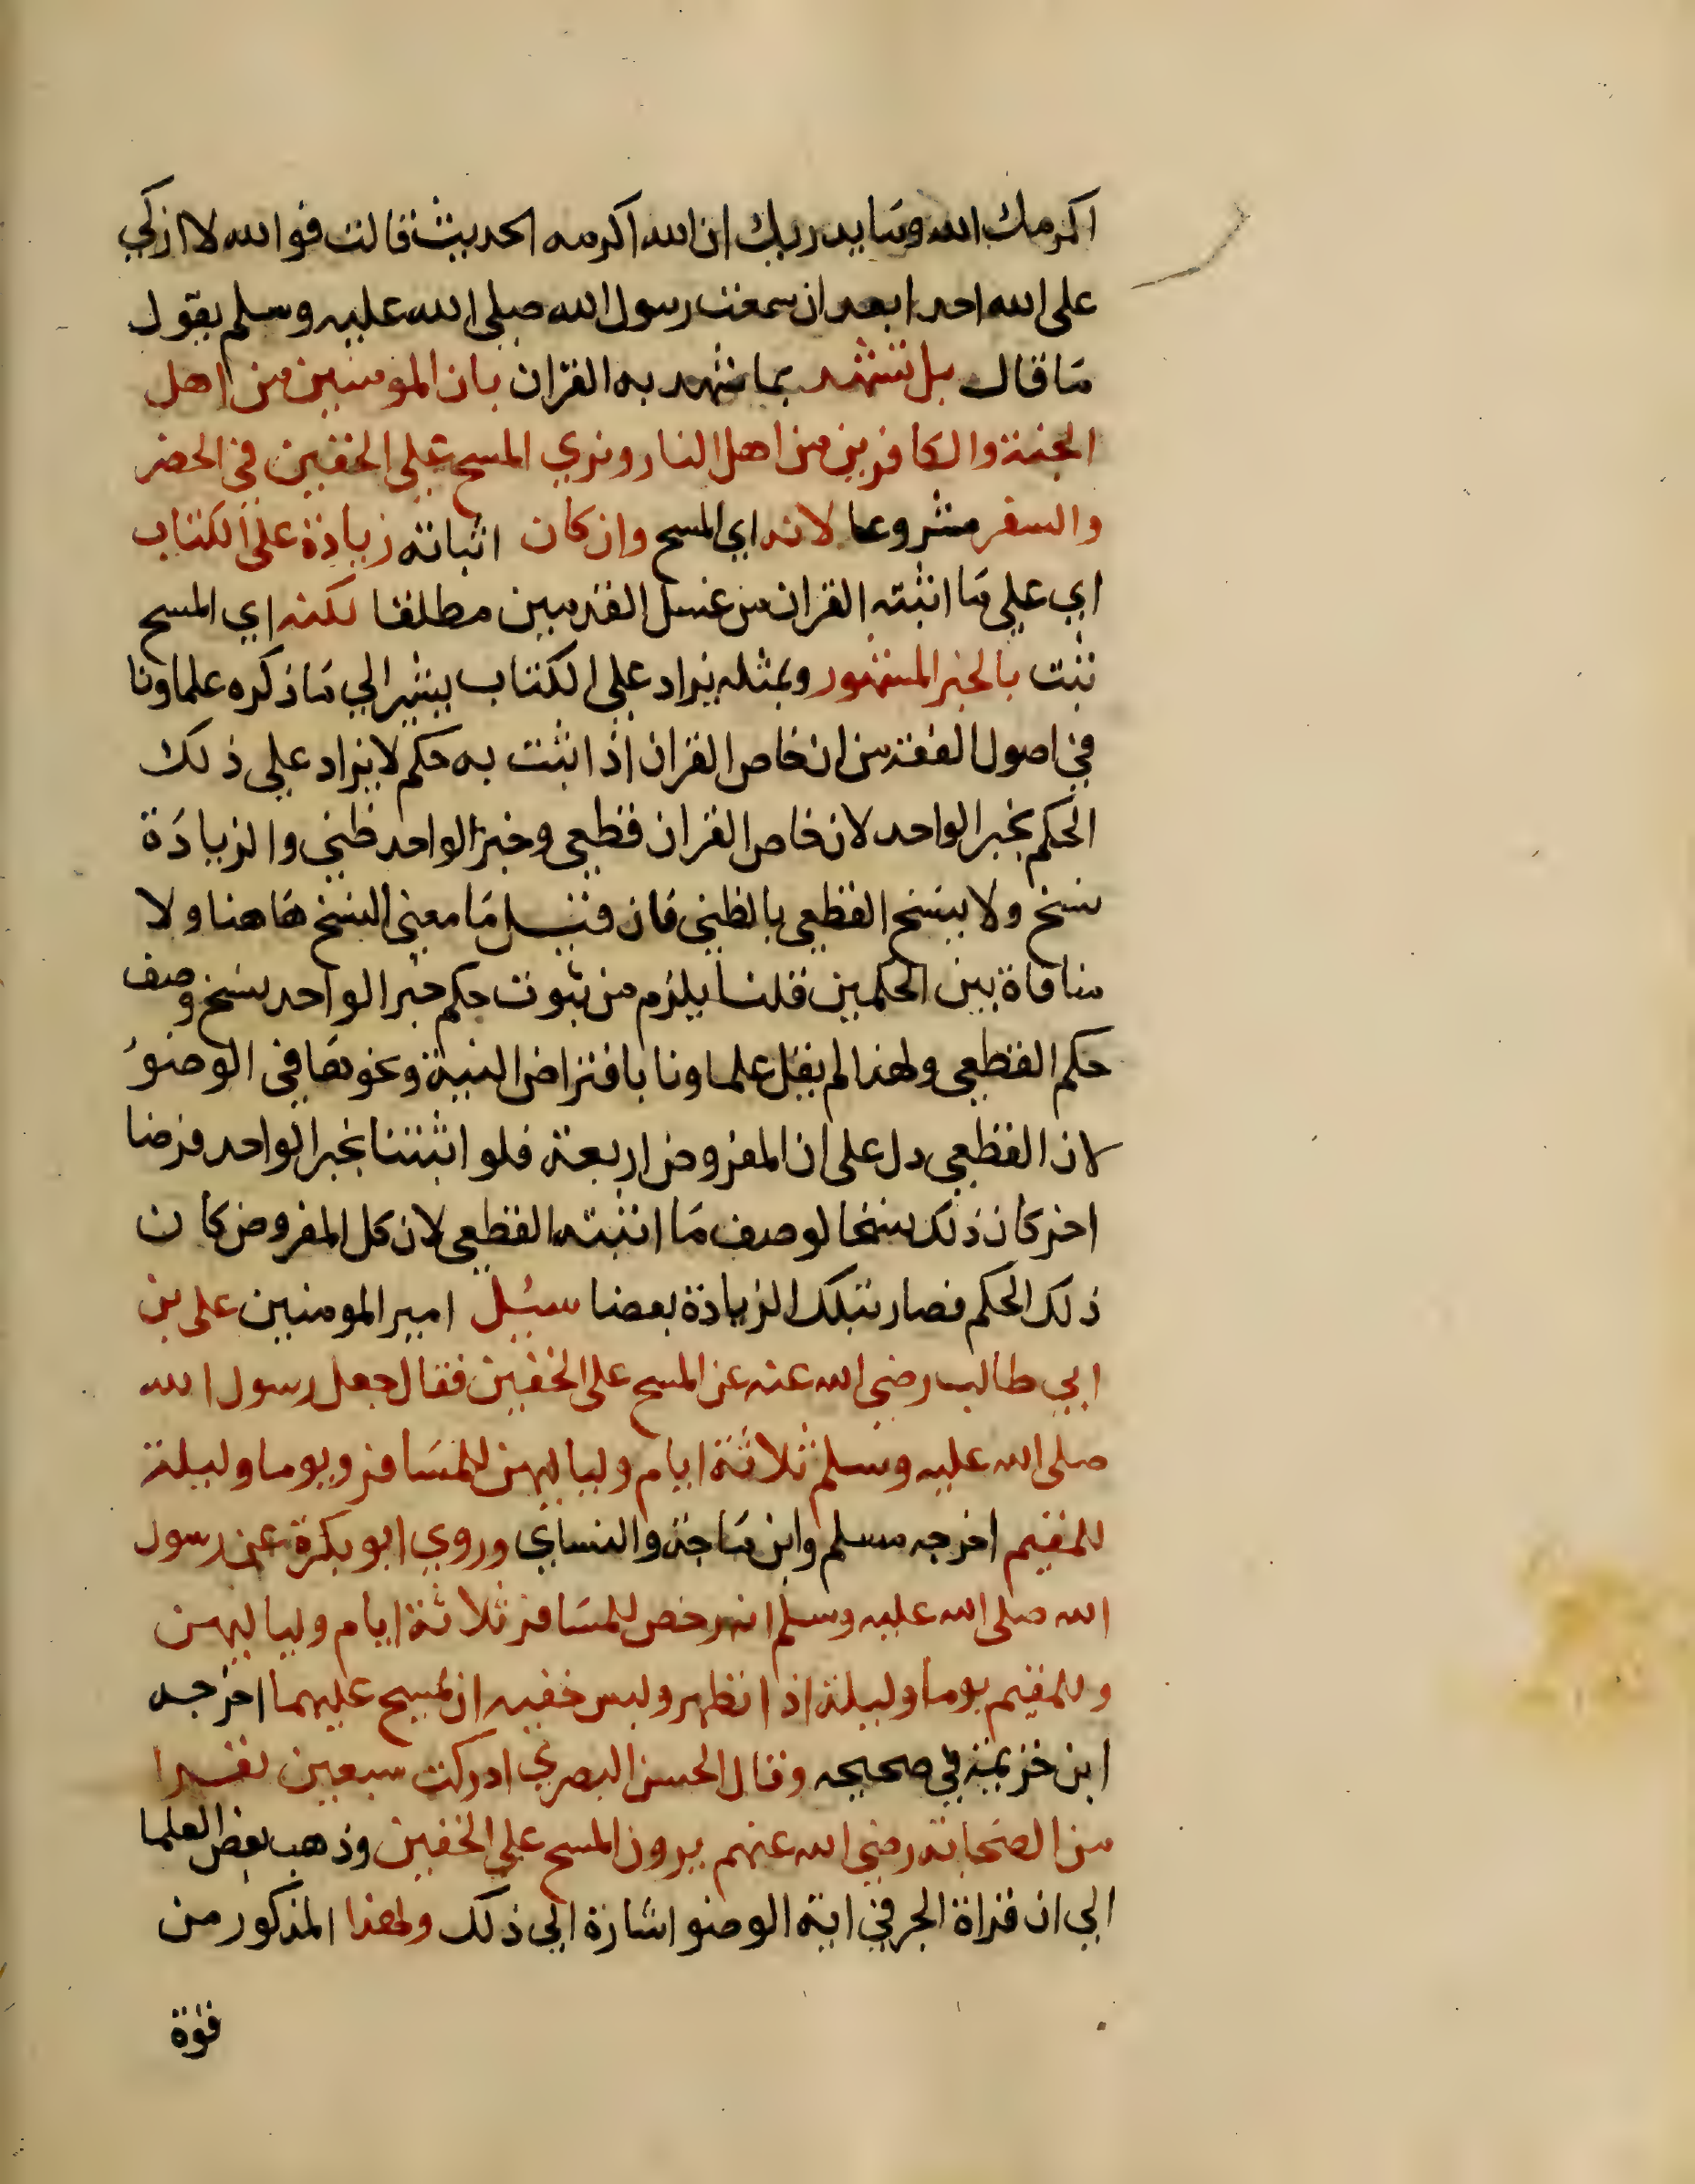 اكرمك الله وما يدريك ان الله اكرمه الحديث قالت فوالله لا ازكي
على الله احدا بعد ان سمعت رسول الله صلى الله عليه وسلم يقول
ما قال بل نشهد بما شهد به القران بان المومنين من اهل
الجنة والكافرين من اهل النار ونري المسح على الخفين في الحضر
والسفر مشروعا لانه اي المسح وان كان اثباته زيادة على الكتاب
اي على ما اثبته القران من غسل القدمين مطلقا لكنه اي المسح
ثبت بالخبر المشهور وبمثله يزاد على الكتاب يشير الي ما ذكره علماونا
في اصول الفقه من ان خاص القران اذا ثبت به حكم لا يزاد على ذلك
الحكم بخبر الواحد لان خاص القران قطعي وخبر الواحد ظني والزيادة
نسخ ولا ينسخ القطعي بالظني فان قيل ما معني النسخ هاهنا ولا
منافاة بين الحكمين قلنا يلزم من ثبوت حكم خبر الواحد نسخ وصف
حكم القطعي ولهذا لم يقل علماونا بافتراض النية ونحوها في الوضوء
لان القطعي دل على ان المفروض اربعة فلو اثبتنا بخبر الواحد فرضا
اخر كان ذلك نسخا لوصف ما اثبته القطعي لان كل المفروض كان
ذلك الحكم فصار بتلك الزيادة بعضا سئل امير المومنين على بن
ابي طالب رضي الله عنه عن المسح على الخفين فقال جعل رسول الله
صلى الله عليه وسلم ثلاثة ايام ولياليهن للمسافر ويوما وليلة
للمقيم اخرجه مسلم وابن ماجة والنساي وروي ابو بكرة عن رسول
الله صلى الله عليه وسلم انه رخص للمسافر ثلاثة ايام ولياليهن
وللمقيم يوما وليلة اذا تطهر ولبس خفيه ان يمسح عليهما اخرجه
ابن خزيمة في صحيحه وقال الحسن البصري ادركت سبعين نفرا
من الصحابة رضي الله عنهم يرون المسح على الخفين وذهب بعض العلما
الي ان قراة الجر في اية الوضو اشارة الي ذلك ولهذا المذكور من
قوة